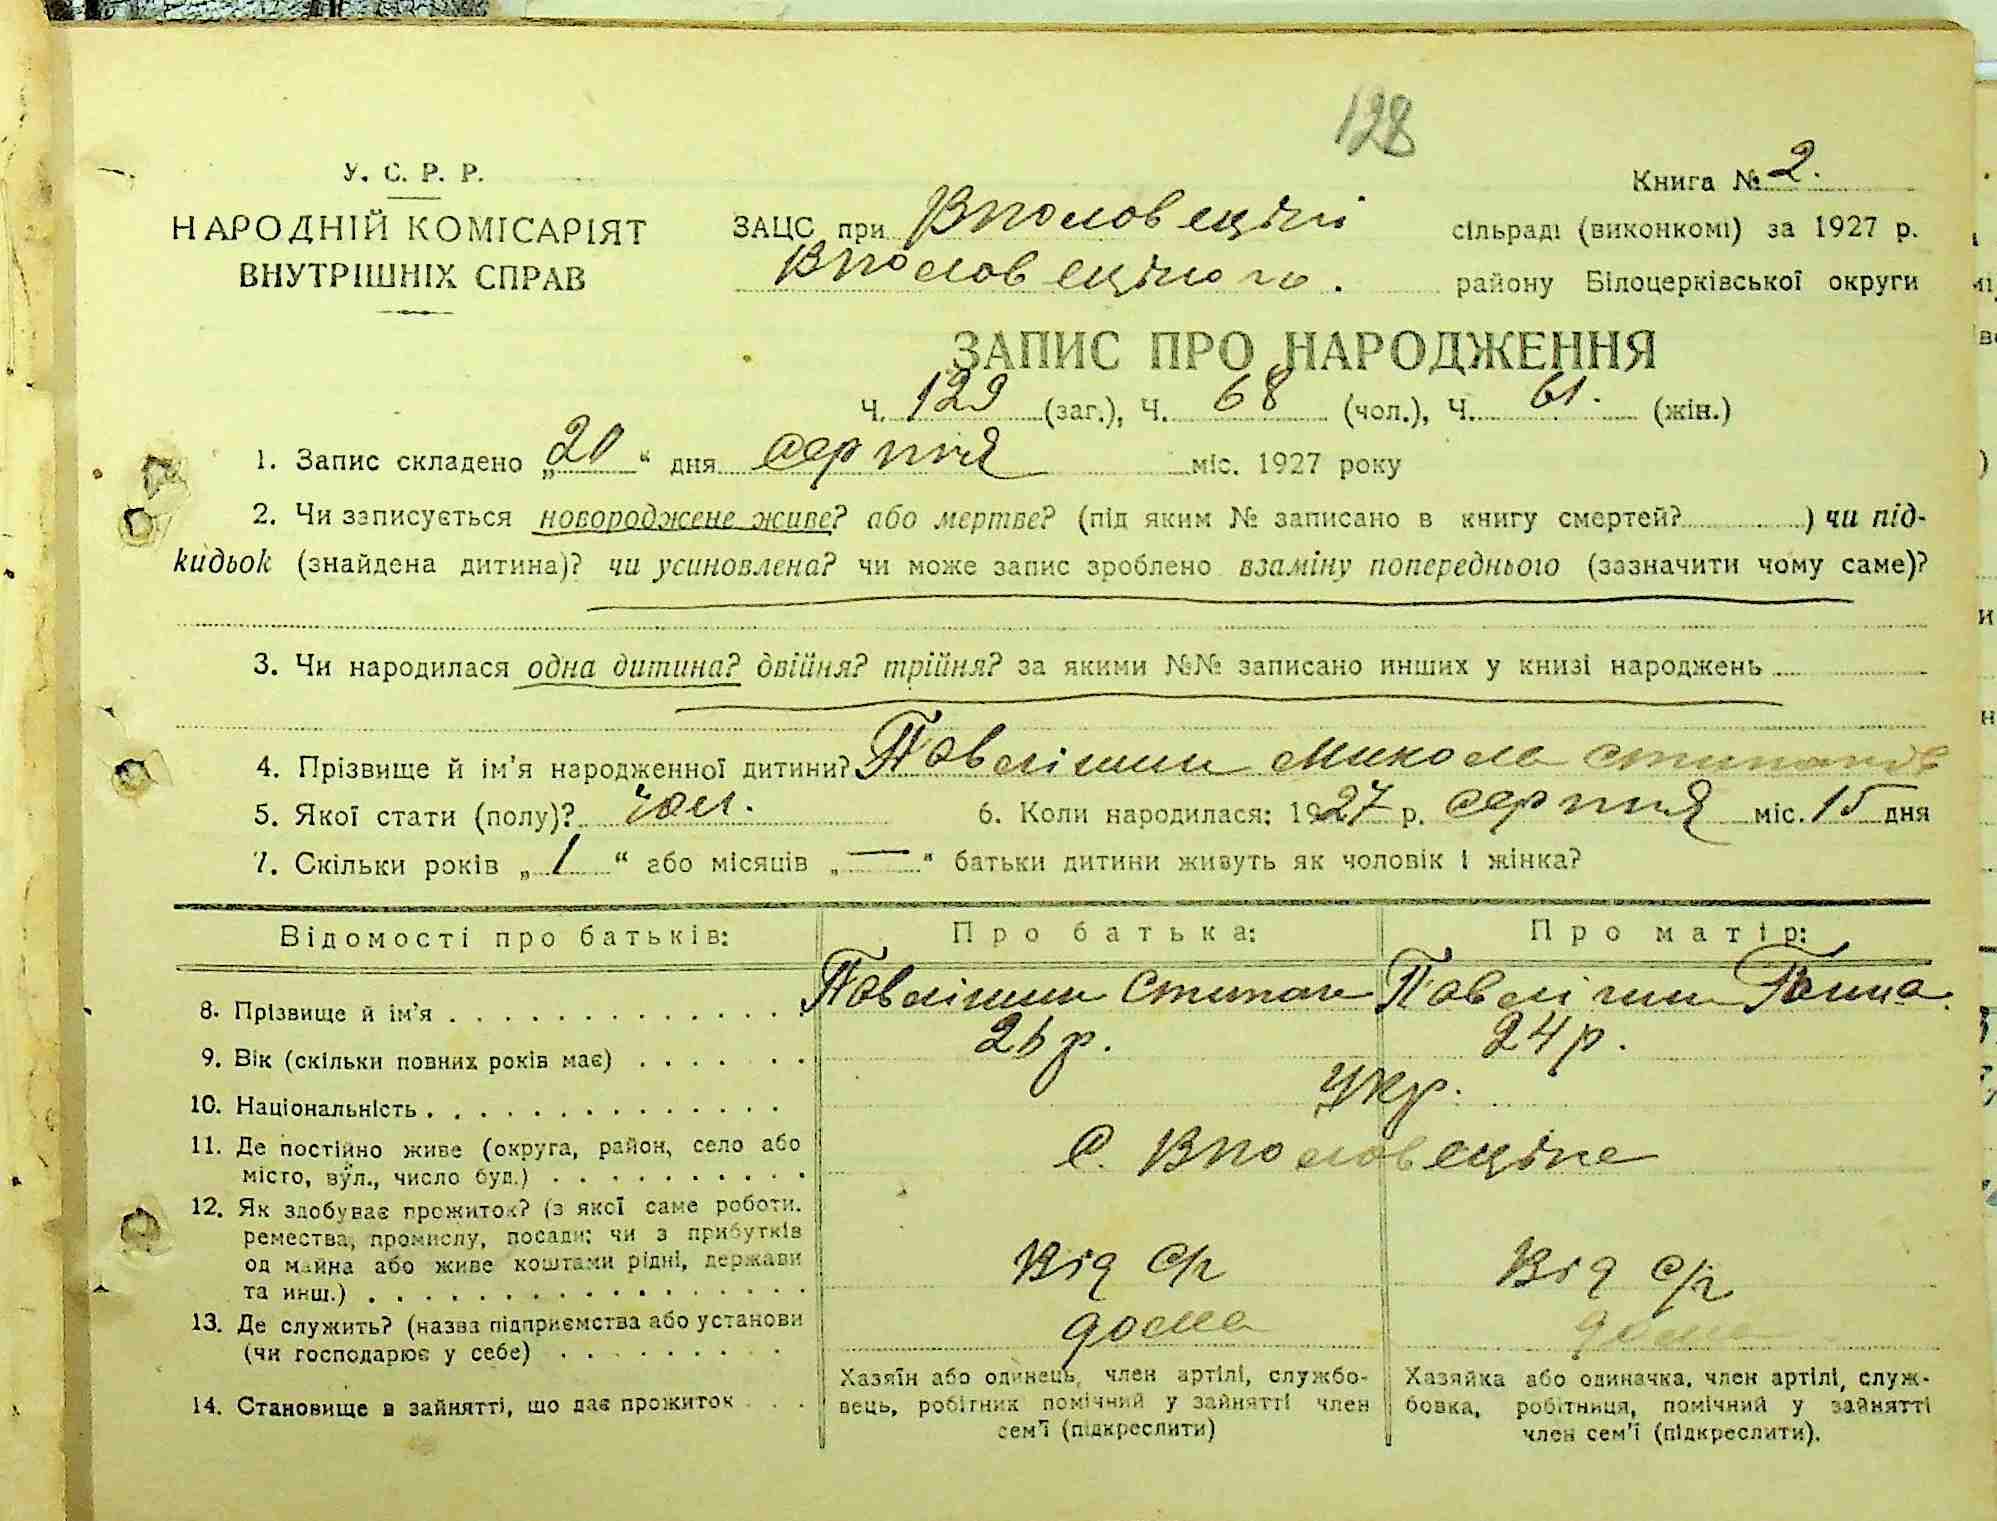 128
У. С. Р. Р.
НАРОДНІЙ КОМІСАРІЯТ
ВНУТРІШНІХ СПРАВ
Книга № 2.
ЗАЦС при Вполовецькій сільраді (виконкомі) за 1927 р.
району Білоцерківської округи
ЗАПИС ПРО НАРОДЖЕННЯ
Ч. 129 (заг.), Ч. 68 (чол.), Ч. 61. (жін.)
1. Запис складено „20“ дня серпня міс. 1927 року
2. Чи записується новороджене живе? або мертве? (під яким № записано в книгу смертей?) чи під-
кидьок (знайдена дитина)? чи усиновлена? чи може запис зроблено взаміну попереднього (зазначити чому саме)?
3. Чи народилася одна дитина? двійня? трійня? за якими №№ записано инших у книзі народжень
4. Прізвище й ім'я народженної дитини? Павлішин Микола Степанов
5. Якої стати (полу)? чол. 6. Коли народилася: 1927 р. серпня міс. 15 дня
7. Скільки років „1“ або місяців „—“ батьки дитини живуть як чоловік і жінка?
Відомості про батьків: Про батька: Про матір:
8. Прізвище й ім'я Павлішин Степан Павлішин Ганна
9. Вік (скільки повних років має) 26 р. 24 р.
10. Національність Укр.
11. Де постійно живе (округа, район, село або
місто, вул., число буд.) С.
12. Як здобуває прожиток? (з якої саме роботи,
ремества, промислу, посади; чи з прибутків
од майна або живе коштами рідні, держави
та инш.) Від с/г Від с/г
13. Де служить? (назва підприємства або установи
(чи господарює у себе) дома дома
14. Становище в зайнятті, що дає прожиток
Хазяїн або одинець, член артілі, службо-
вець, робітник помічний у зайнятті член
сем'ї (підкреслити)
Хазяйка або одиначка, член артілі, служ-
бовка, робітниця, помічний у зайнятті
член сем'ї (підкреслити).